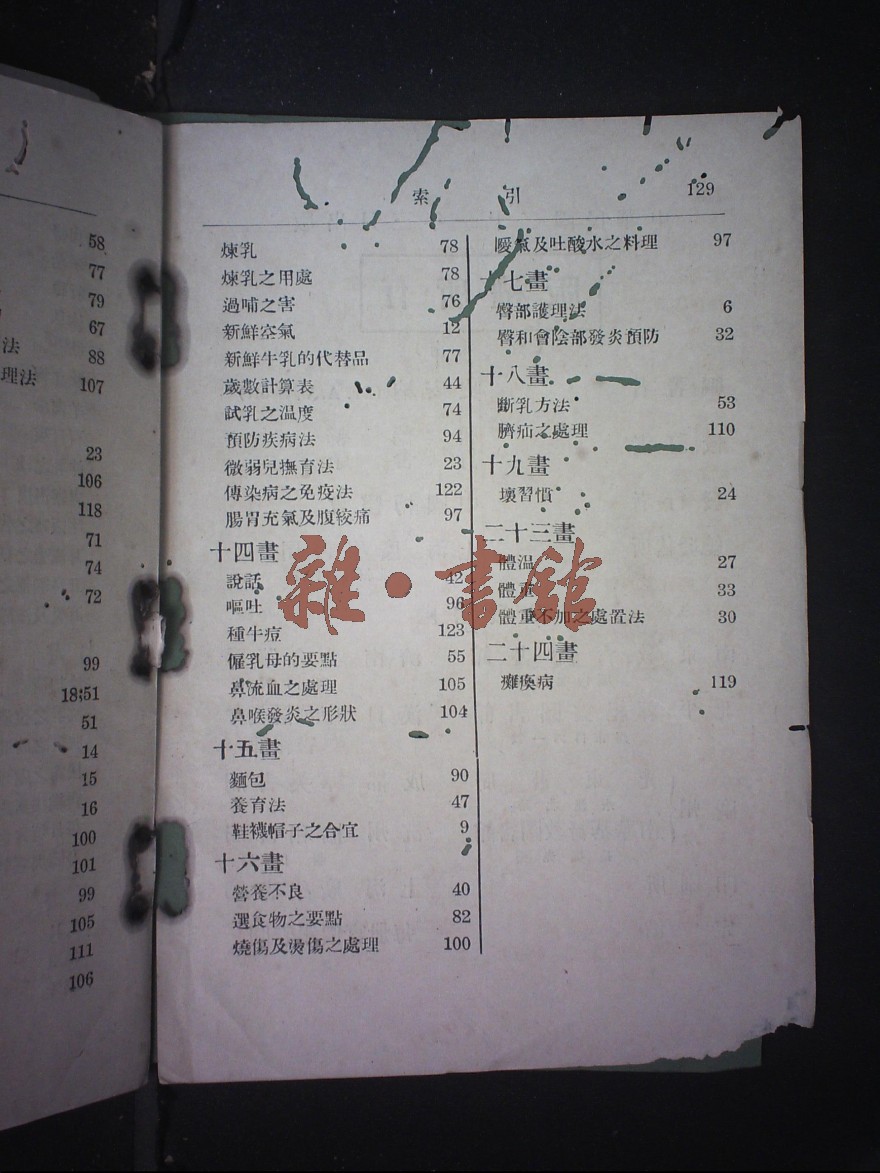 58
77
79
67
法 88
理法 107
23
106
118
71
74
72
99
18;51
51
14
15
16
100
101
99
105
111
106
索 引 129
煉乳 78
煉乳之用處 78
過哺之害 76
新鮮空氣 12
新鮮牛乳的代替品 77
歲數計算表 44
試乳之温度 74
預防疾病法 94
微弱兒撫育法 23
傳染病之免疫法 122
腸胃充氣及腹絞痛 97
十四畫
說話 42
嘔吐 96
種牛痘 123
僱乳母的要點 55
鼻流血之處理 105
鼻喉發炎之形狀 104
十五畫
麵包 90
養育法 47
鞋襪帽子之合宜 9
十六畫
營養不良 40
選食物之要點 82
燒傷及燙傷之處理 100
噯氣及吐酸水之料理 97
十七畫
臀部護理法 6
臀和會陰部發炎預防 32
十八畫
斷乳方法 53
臍疝之處理 110
十九畫
壞習慣 24
二十三畫
體温 27
體重 33
體重不加之處置法 30
二十四畫
癱瘓病 119
雜·書館